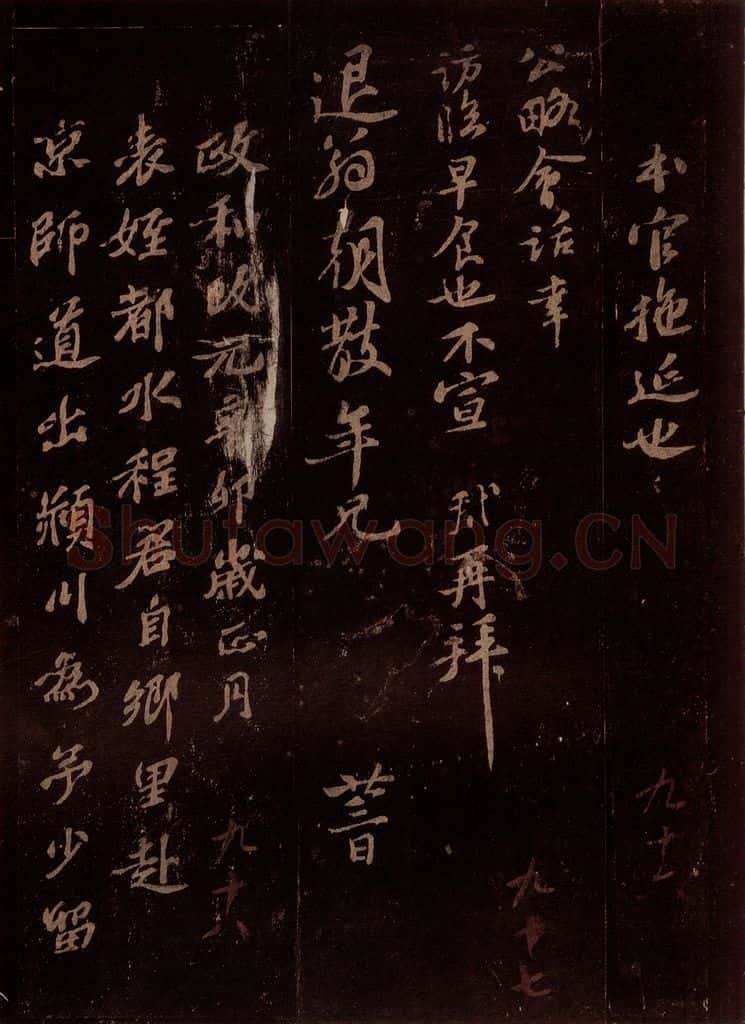 本官拖延也〻
公略會話幸
訪臨早食也不宣 軾再拜
退翁朝散年兄 廿三日
政和改元辛卯歲正月
表姪都水程君自鄉里赴
京師道出潁川為予少留
九十六
九十七
九十八
Shufawang.CN